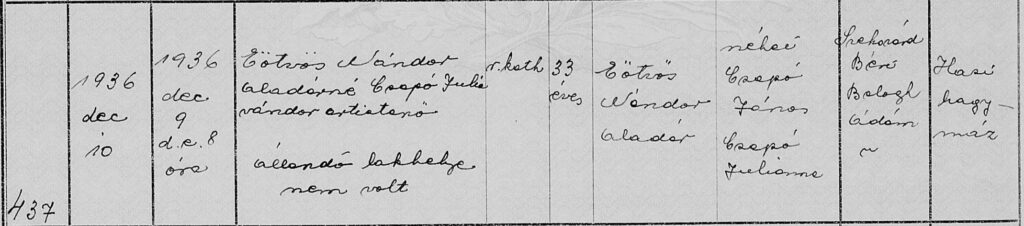 437
1936
dec
10
1936
dec
9
d.e. 8
óra
Eötvös Nándor
Aladárné Csapó Julia
vándor artistanő
Állandó lakhelye
nem volt
r. kath
33
éves
Eötvös
Nándor
Aladár
néhai
Csapó
János
Csapó
Julianna
Szekszárd
Béri
Balogh
Ádám
u
Hasi
hagy-
máz